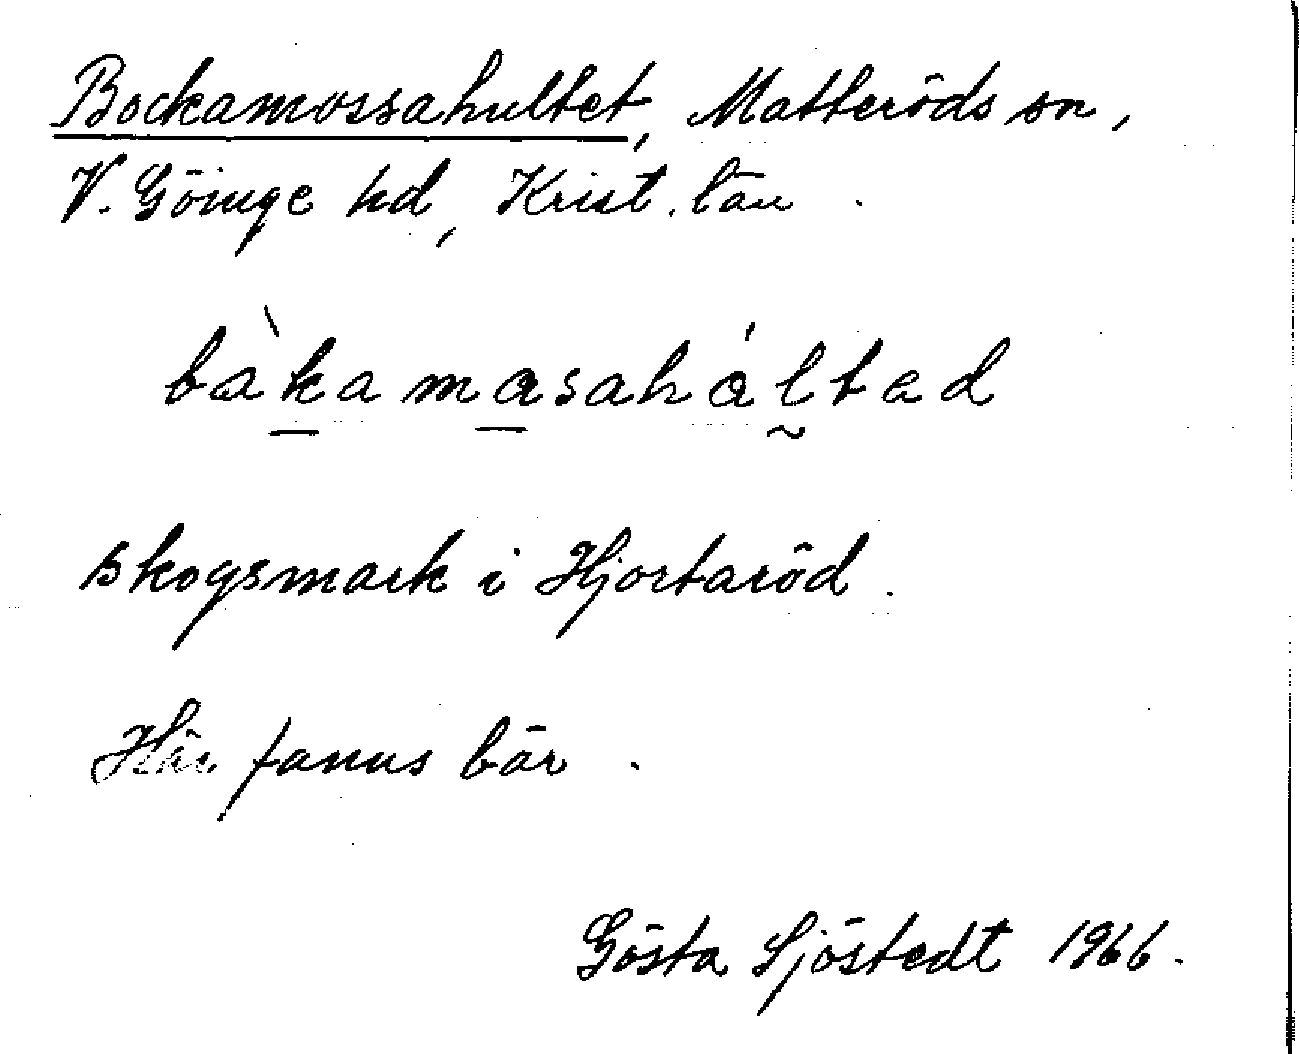 Bockamossahultet, Matteröds sn,
V. Göinge hd, Krist. län.
bàkamasaháltad
skogsmark i Hjortaröd.
Här fanns bär.
Gösta Sjöstedt 1966.